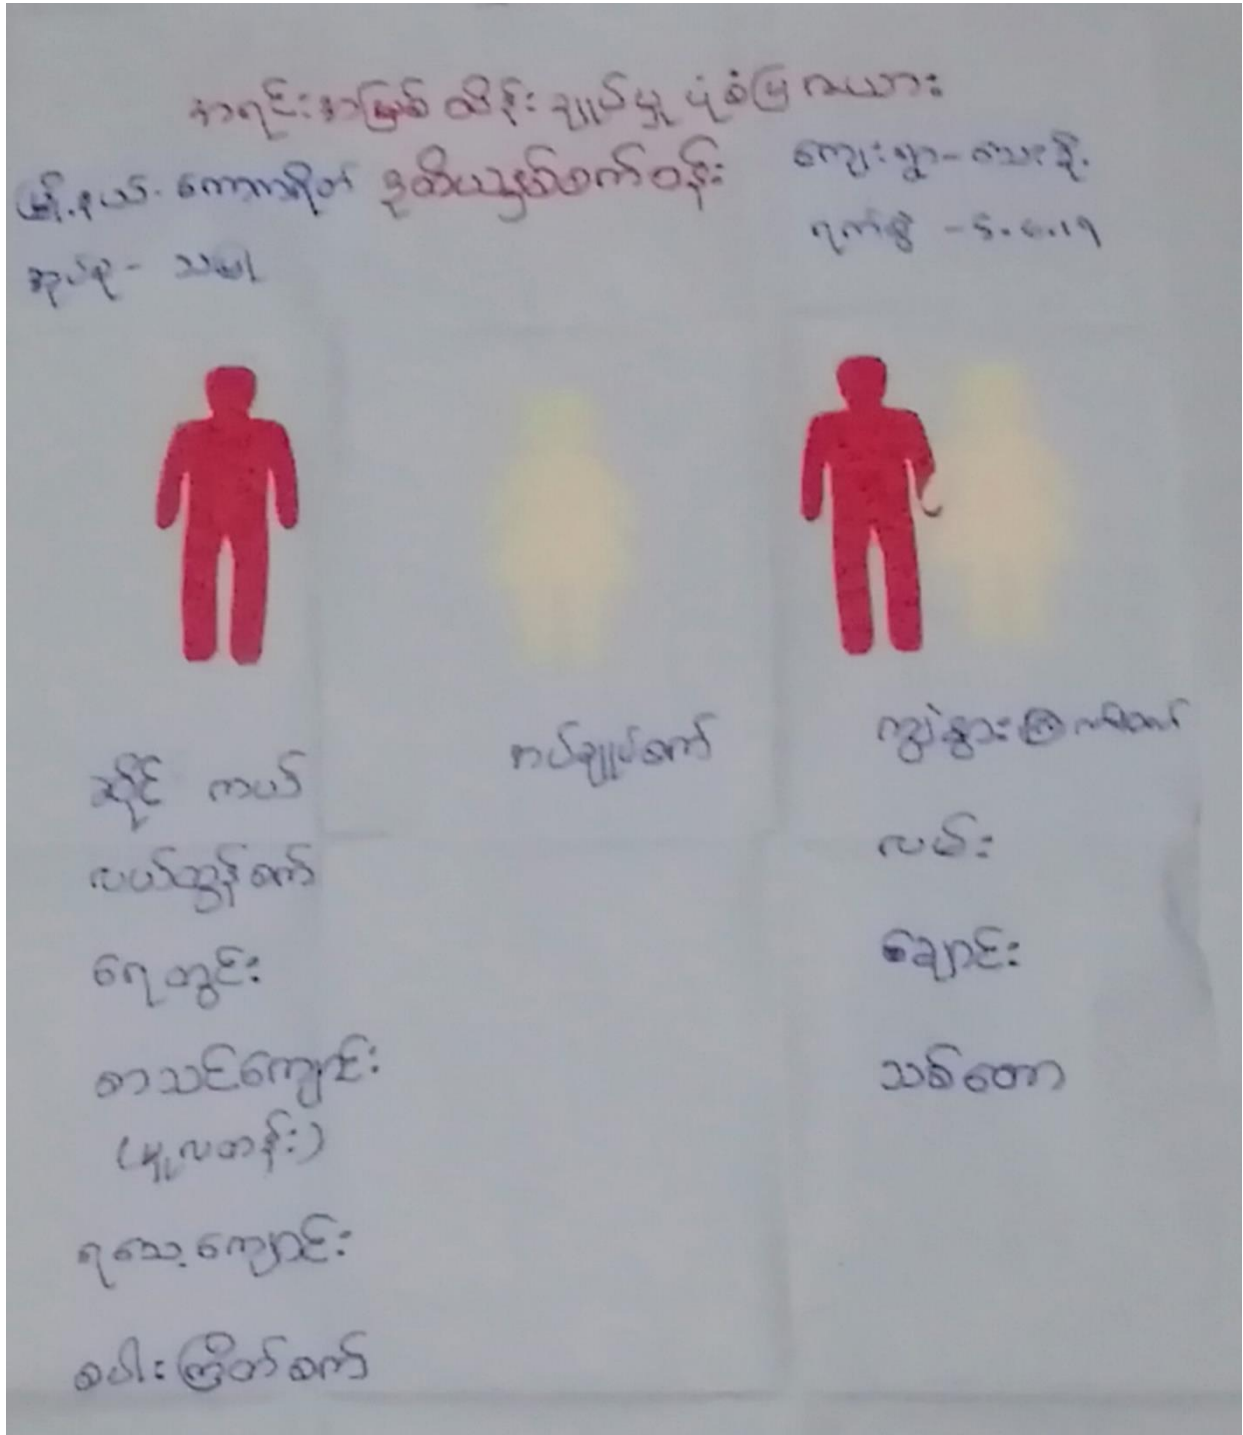 အရင်းအမြစ် ထိန်းချုပ်မှု ပုံစံပြ ဇယား
မြို့နယ်- ကော့ကရိတ် ဒုတိယနှစ်ဝက်ဝန်း ကျေးရွာ-
အုပ်စု- ရက်စွဲ -
ဆိုင် ကယ်
လယ်ထွန်စက်
ရေတွင်း
စာသင်ကျောင်း
(မူလတန်း)
ရသေ့ကျောင်း
စပါးကြိတ်စက်
အပ်ချုပ်စက်
ကျွဲနွား
လမ်း
ချောင်း
သစ်တော